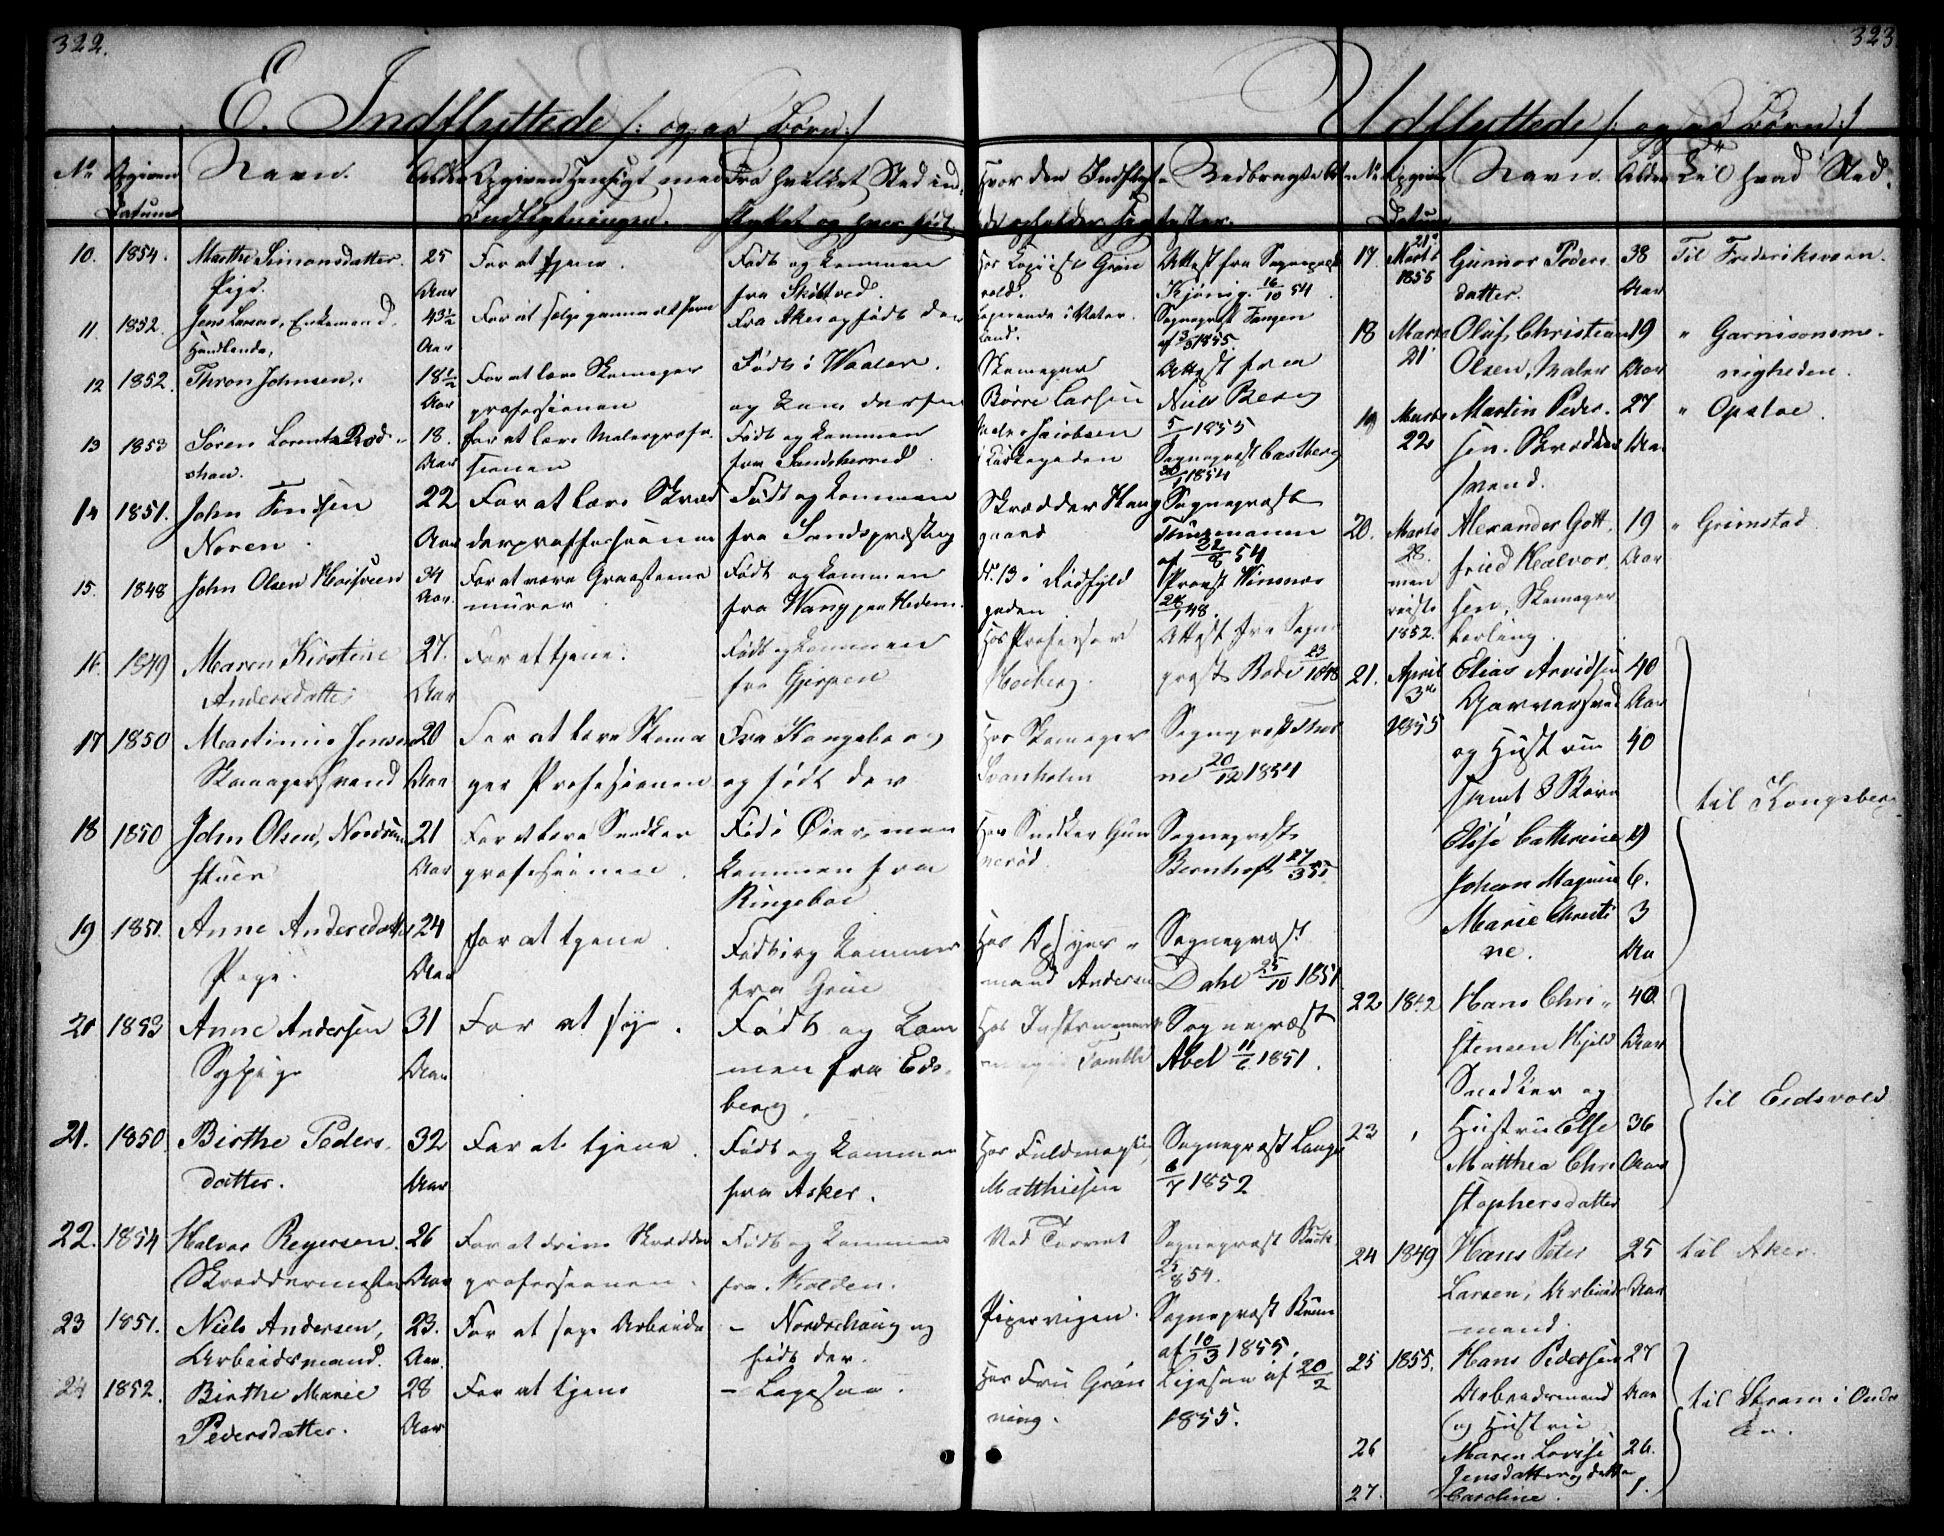 322.
E. Indflyttede /: ogsaa Børn :/
No Opgiven Datum
Navn.
Alder
Opgiven Hensigt med Indflytningen.
Fra hvilket Sted indflyttet og hvor født.
Hvor den Indflyttede opholder sig
Medbragte Attester.
10. 1854. Marthe Simonsdatter. Pige. 25 Aar For at tjene. Født og kommen fra Skibtved. Hos Copiist Grøn vold. Attest fra Sognepræst Kjønig. 16/10 54.
11. 1852. Jens Larsen, Enkemand, Handlende, 43½ Aar Fra Aker og født der Sognepræst Tangen af 3/5 1855.
12 1852. Thron Johnsen, 18½ Aar For at lære Skomager professionen Født i Waaler. og kom derfra Skomager Børre Larsen Attest fra Niels Berg 5/1 1855
13 1853 Søren Lorentz 18. Aar For at lære Malerprofessionen Født og kommen fra Sandsherred. Maler Jacobsen i Kirkegaden Sognepræst Castberg 1854
14 1851. John Noren. 22 Aar For at lære Skræd derproffessionen Født og kommen Skrædder Haug gaard Sognepræst Thurmann af 22/8 54
15. 1848 John Olsen Hoisveen 34 Aar. For at være Graasteens murer Født og kommen fra Wang paa Hedem. No. 13 i Rødfyld gaden Provst Winsnes 48.
16. 1849 Maren Kirstine Andersdatter 27. Aar For at tjene. Født og kommen fra Gjerpen Hos Professor Hoeberg. Attest fra Sogne præst Rode 23/1 1848
17 1850 Martinus Jensen Skomagersvend 20 Aar For at lære Skoma ger Professionen Fra Kongsberg og født der Hos Skomager Svanholm Sognepræst ne 20/12 1854
18 1850 John Olsen, Nordsen stuen 21 Aar For at lære Snedker professionen. Fød i Øier, men kommen fra Ringeboe Hos Snedker Gun nerød. Sognepræst Bernhoft 27/3 55
19 1851. Anne Andersdatter Pige. 24 Aar For at tjene. Født og kommen fra Grue Hos Opsyns- mand Andersen Sognepræst Dahl 25/10 1851
20 1853 Anne Andersen Sypige 31 Aar For at sye. Født og kom men fra Eds- berg. Hos Instrument Sognepræst Abel 11/6 1851.
21. 1850 Birthe Peders. datter. 32 Aar For at tjene. Født og kommen fra Asker. Hos Fuldmægtig Matthiesen Sognepræst Lange 6/7 1852
22. 1854 Halvor Reyersen. Skræddermester 26 Aar For at drive Skrædder professionen. Født og kommen fra Wolden. Ved Torvet Sognepræst 854.
23 1851. Niels Andersen, Arbeidsmand. 23. Aar. For at søge Arbeide – Nordrehaug og født der. Pipervigen. Sognepræst af 10/3 1855.
24 1852. Birthe Marie Pedersdatter. 28 Aar For at tjene – Lagesaa. Hos Fru Grøn ning. af 20/2 1855.
323
Udflyttede /: ogsaa Børn :/
No. Opgiven Datum
Navn.
Alder
Til hvad Sted.
17. 21de Marts 1855 Gunnor Peders datter. 38 Aar Til Frederiksværn.
18 Marts 21. Oluf Christian Olsen, Maler 19 Aar " Garnisonsme- nigheden.
19 Marts 22 Martin Peder- sen. Skrædder svend. 27 Aar " Opsloe.
20. Marts 28. men reiste 1852. Alexander Gott fried Halvor sen, Skomager lærling. 19 Aar " Grimstad
21. April 3de 1855 Elias Arvidsen Garversvend 40 Aar
og Hustru 40
samt 3 Børn
Elise Cathrine 9
Johan Magnus 6.
Marie Christi ne. 3 Aar
til Kongsberg
22 1842 Hans Chri- stensen Hjeld Snedker og 40. Aar
23 Hustru Else Matthea Chri stophersdatter 36 Aar
til Eidsvold
24 1849 Hans Peter Larsen, Arbeids mand. 25 Aar til Aker.
25 1855. Hans Pedersen Arbeidsmand og Hustru 27 Aar
26 Maren Lovise Jensdatter og datter 26.
27. Caroline. 1.
til Strøm i Oudal en.